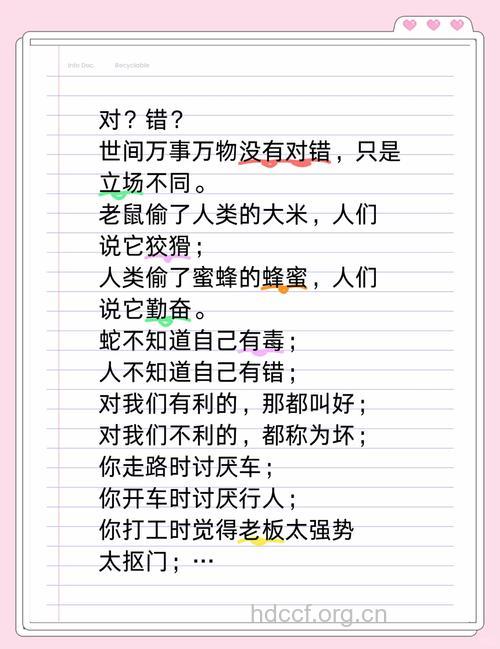 Info Doc. Recyclable
对？错？
世间万事万物没有对错，只是
立场不同。
老鼠偷了人类的大米，人们
说它狡猾；
人类偷了蜜蜂的蜂蜜，人们
说它勤奋。
蛇不知道自己有毒；
人不知道自己有错；
对我们有利的，那都叫好；
对我们不利的，都称为坏；
你走路时讨厌车；
你开车时讨厌行人；
你打工时觉得老板太强势
太抠门；…
hdccf.org.cn